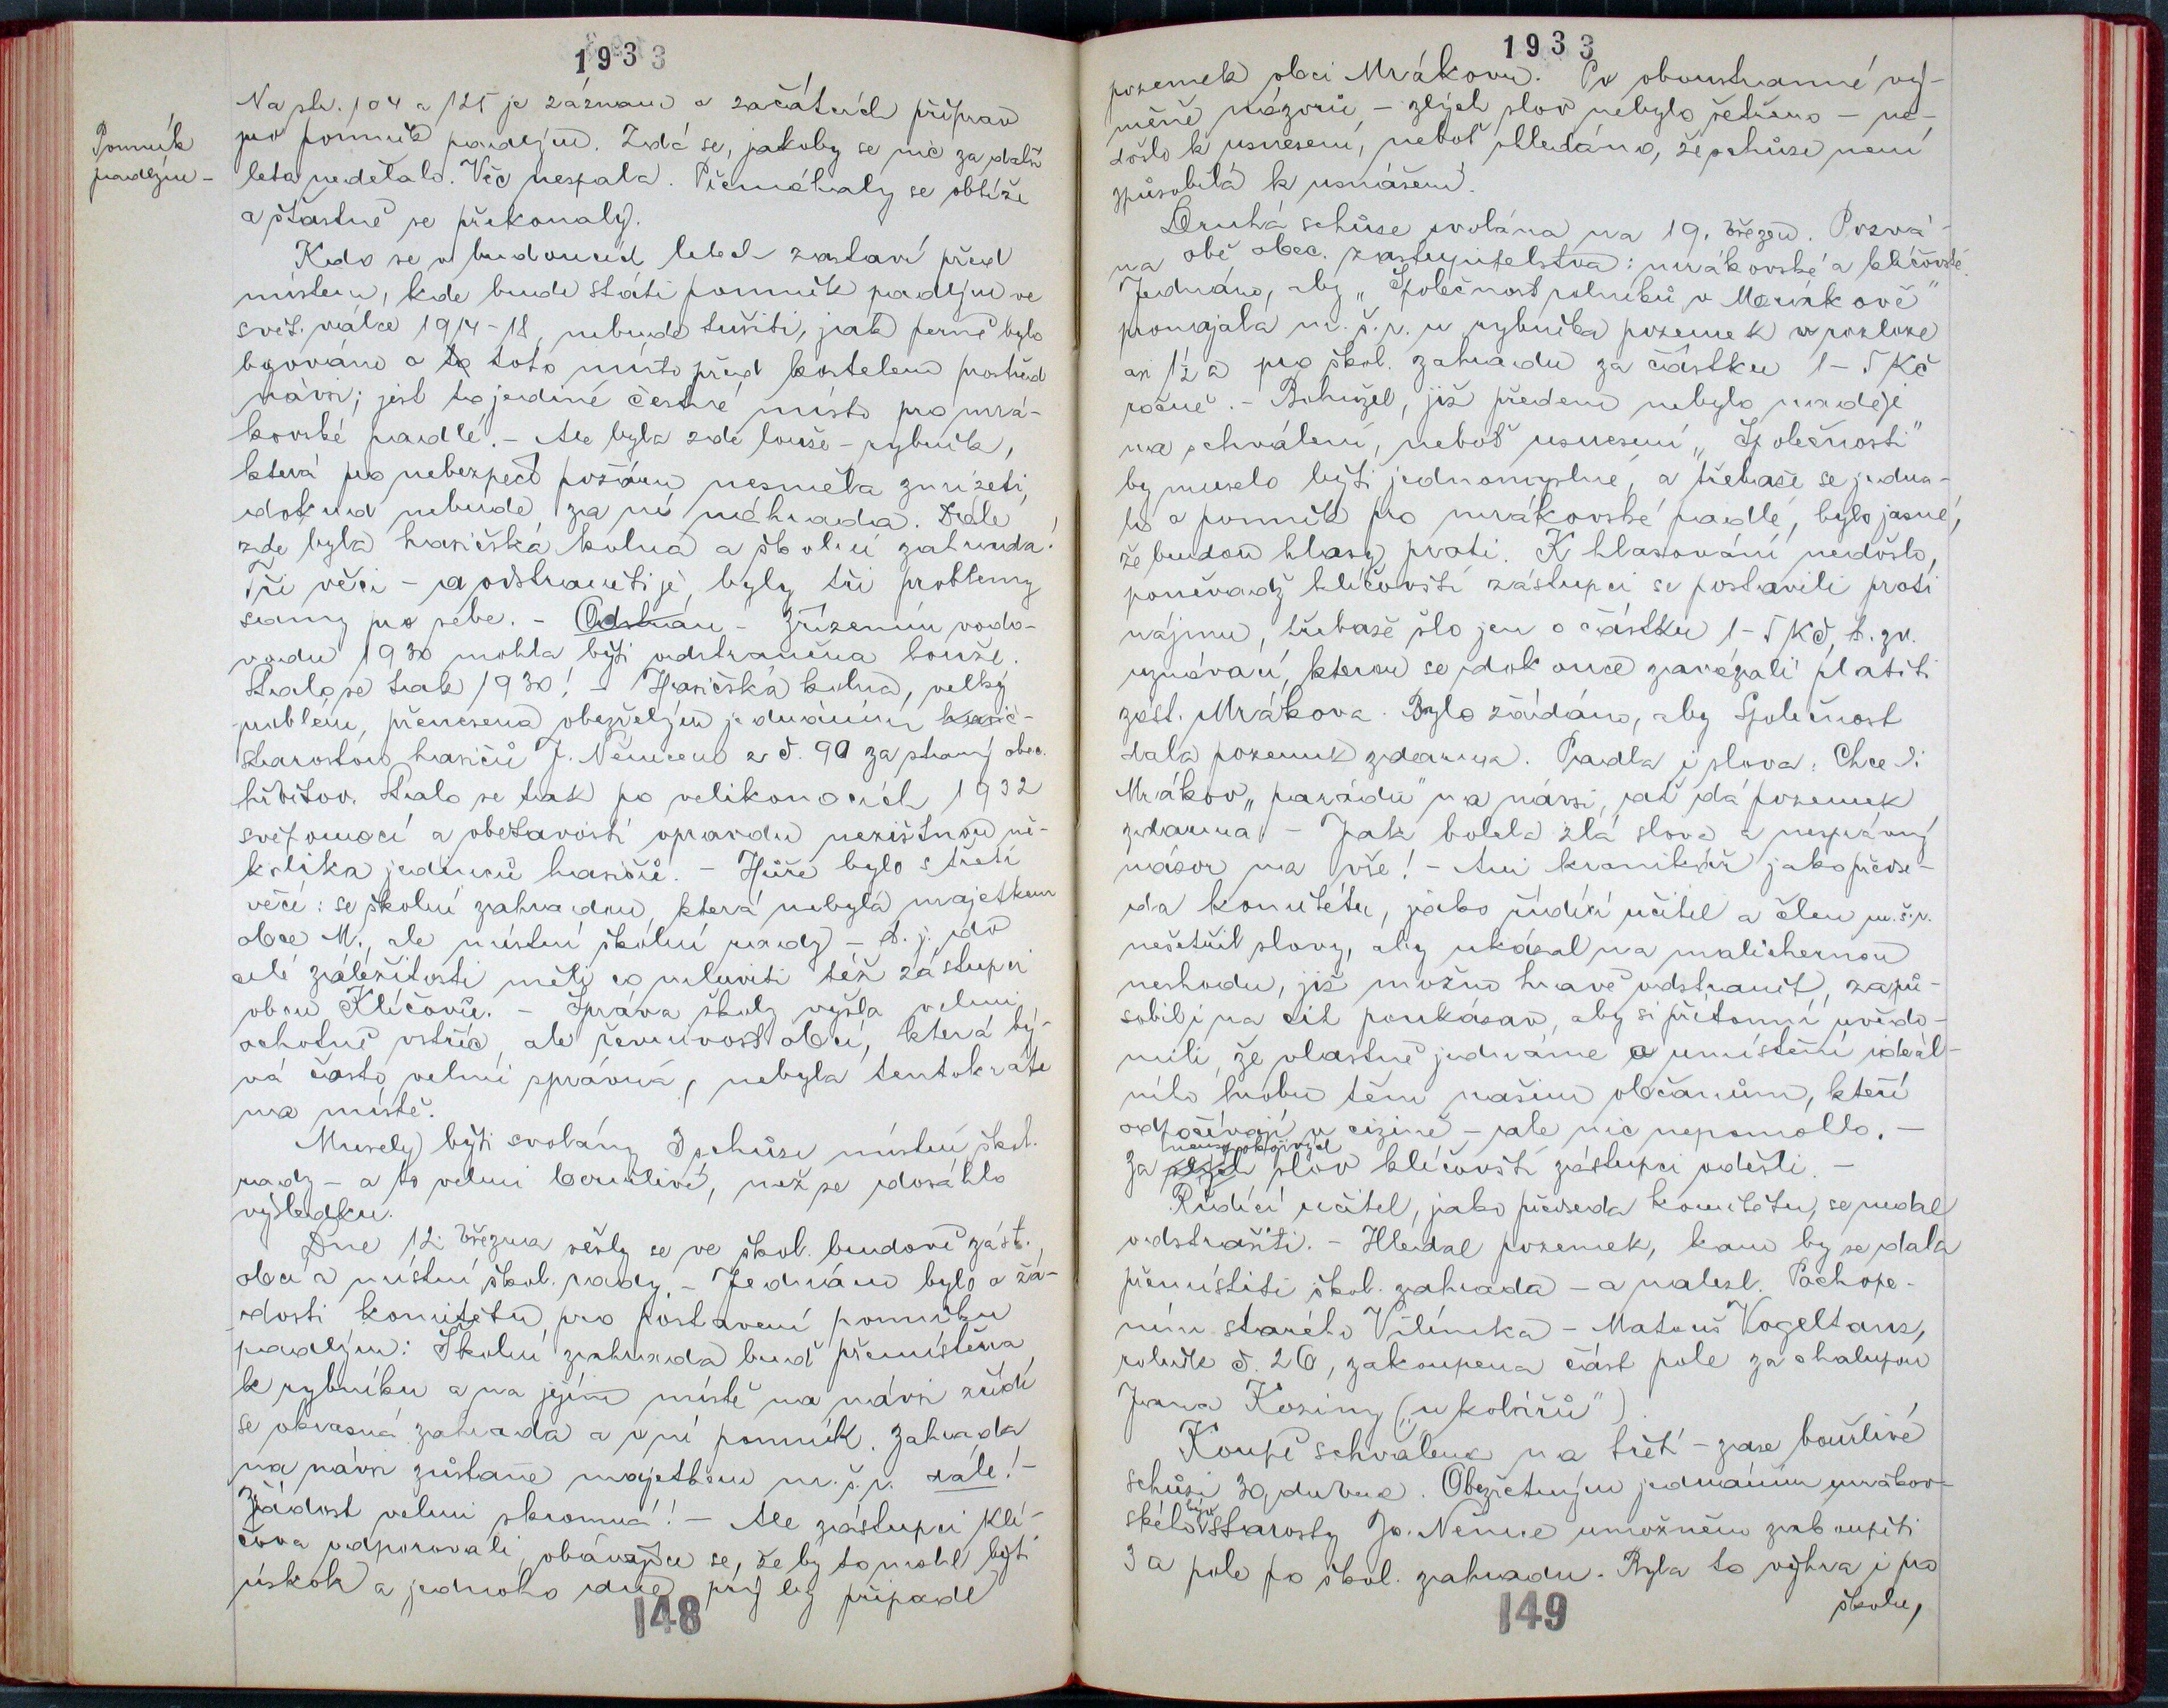 1933
Pomník
padlým -
Na str. 104 a 125 je záznam o začátcích příprav
pro pomník padlým. Zdá se, jakoby se nic za další
leta nedělalo. Věc nespala. Přemáhaly se obtíže
a šťastně se překonaly.
Kdo se v budoucích letech zastaví před
místem, kde bude státi pomník padlým ve
svět. válce 1914-18, nebude tušiti, jak perně bylo
bojováno o to toto místo před kostelem prostřed
návsi; jest to jediné čestné místo pro mrá-
kovské padlé. - Ale byla zde louže - rybník,
která pro nebezpečí požáru nesměla zmizeti,
dokud nebude za ni náhrada. Dále
zde byla hasičská kolna a školní zahrada!
Tři věci - a odstraniti je, byly tři problemy
samy pro sebe. - Odstran - Zřízením vodo-
vodu 1930 mohla býti odstraněna louže.
Stalo se tak 1930! - Hasičská kolna, velký
problém, přenesena obezřelým jednáním hasič-
starostou hasičů J. Němcem z č. 90 za starý obec.
hřbitov. Stalo se tak po velikonocích 1932
svépomocí a obětavostí opravdu nezištnou ně-
kolika jedinců hasičů. - Hůře bylo s třetí
věcí: se školní zahradou, která nebyla majetkem
obce M., ale místní školní rady - t. j. do
celé záležitosti měli co mluviti též zástupci
obce Klíčova. - Správa školy vyšla velmi
ochotně vstříc, ale řevnivost obcí, která bý-
vá často velmi správná, nebyla tentokráte
na místě.
Musely býti svolány 3 schůze místní škol.
rady - a to velmi bouřlivé, než se dosáhlo
výsledku.
Dne 12. března sešly se ve škol. budově zást.
obcí a místní škol. rady. - Jednáno bylo o žá-
dosti komitétu pro postavení pomníku
padlým: Školní zahrada buď přemístěna
k rybníku a na jejím místě na návsi zřídí
se okrasná zahrada a v ní pomník. Zahrada
na návsi zůstane majetkem m.š.r. dále! -
Žádost velmi skromná! - Ale zástupci Klí-
čova odporovali, obávajíce se, že by to mohl býti
úskok a jednoho dne prý by připadl
148
1933
pozemek obci Mrákovu. Po oboustranné vý-
měně názorů, - zlých slov nebylo šetřeno - ne-
došlo k usnesení, neboť shledáno, že schůze není
způsobilá k usnášení.
Druhá schůze svolána na 19. březen. Pozvá-
na obě obec. zastupitelstva: mrákovské a klíčovské.
Jednáno, aby „Společnost rolníků v Mrákově"
pronajala m.š.r. u rybníka pozemek v rozloze
asi 1½ a pro škol. zahradu za částku 1-5 Kč
ročně. - Bohužel, již předem nebylo naděje
na schválení, neboť usnesení „Společnosti"
by muselo býti jednomyslné, a třebaže se jedna-
lo o pomník pro mrákovské padlé, bylo jasné,
že budou hlasy proti. K hlasování nedošlo,
poněvadž klíčovští zástupci se postavili proti
nájmu, třebaže šlo jen o částku 1-5 Kč, t. zv.
uznávací, kterou se dokonce zavázali platiti
zást. Mrákova. Bylo žádáno, aby Společnost
dala pozemek zdarma. Padla i slova: Chce-li
Mrákov „parádu" na návsi, ať dá pozemek
zdarma. - Jak bolela zlá slova a nesprávný
názor na vše! - Ani kronikář jako předse-
da komitétu, jako řídící učitel a člen m.š.r.
nešetřil slovy, aby ukázal na malichernou
neshodu, již možno hravě odstranit, zapů-
sobil i na cit poukázav, aby si přítomní uvědo-
mili, že vlastně jednáme o umístění ideál-
ního hrobu těm našim občanům, kteří
odpočívají v cizině - ale nic nepomohlo. -
Za slov klíčovští zástupci odešli. -
Řídící učitel, jako předseda komitétu, se nedal
odstrašiti. - Hledal pozemek, kam by se dala
přemístiti škol. zahrada - a nalezl. Pochope-
ním starého Vilímka - Matouš Vogeltanz,
rolník č. 26, zakoupena část pole za chalupou
Jana Koziny („u kolářů")
Koupě schválena na třetí - zase bouřlivé
schůzi 30. dubna. Obezřetným jednáním mrákov-
ského býv. starosty Jo. Němce umožněno zakoupiti
3 a pole pro škol. zahradu. Byla to výhra i pro
školu,
149